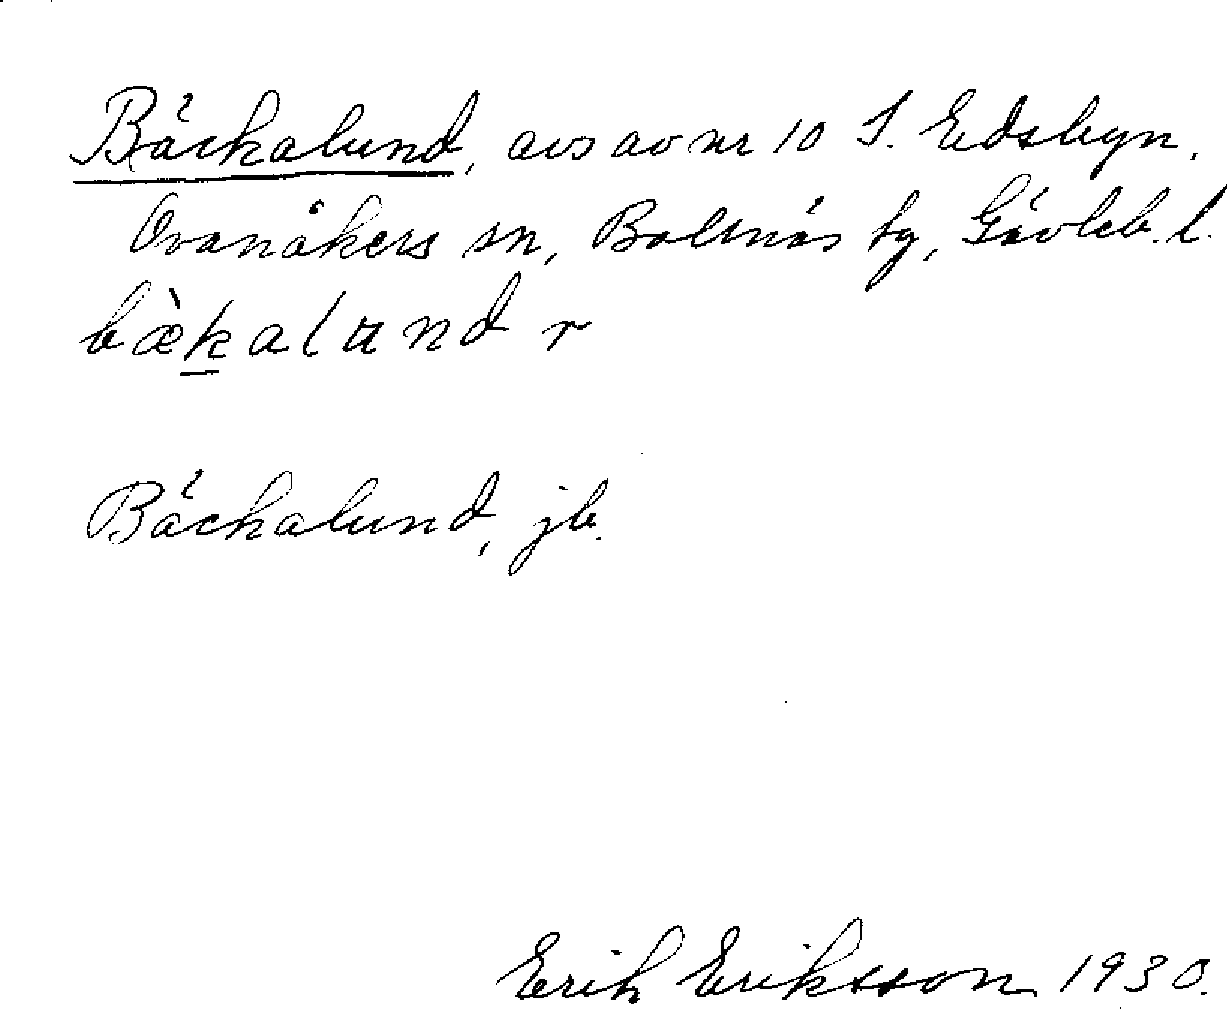 Bäckalund, avs av nr 10 S. Edsbyn.
Ovanåkers sn, Bollnäs tg, Gävleb. l.
bæ̀k̲alund r
Bäckalund, jb.
Erik Eriksson 1930.